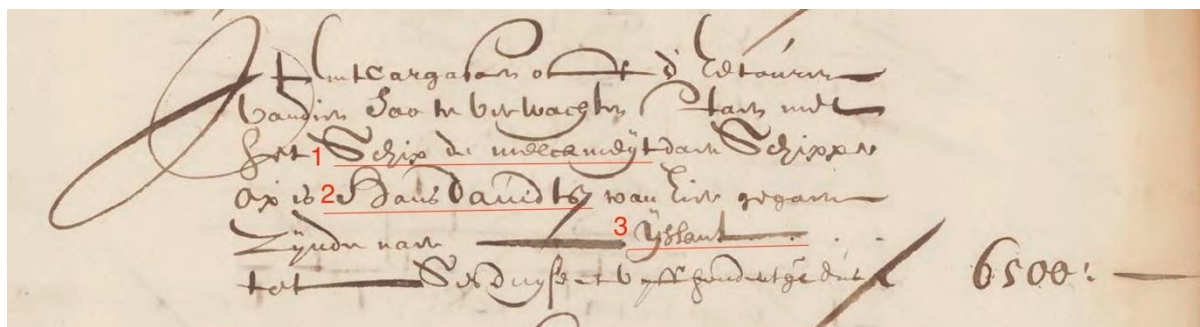 Het Cargasoen ofte d' Retouren
van dien soo te verwachten staen met
het 1 Schip de melckmeÿt daer Schipper
op is 2 Hans Davidtsz van hier gegaen
zÿnde naer 3 ÿslant
tot Sesduÿsent vÿffhondert gedue 6500: